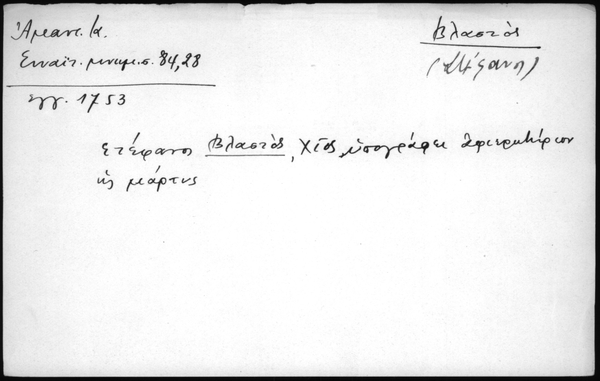 Ἀμαντ. Κ.
Σιναϊτ. μνημ. σ. 84,28
ἔγγ. 1753
Βλαστὸς
(Στέφανος)
Στέφανος Βλαστὸς, Χῖος, ὑπογράφει ἀφιερωτήριον
ὡς μάρτυς